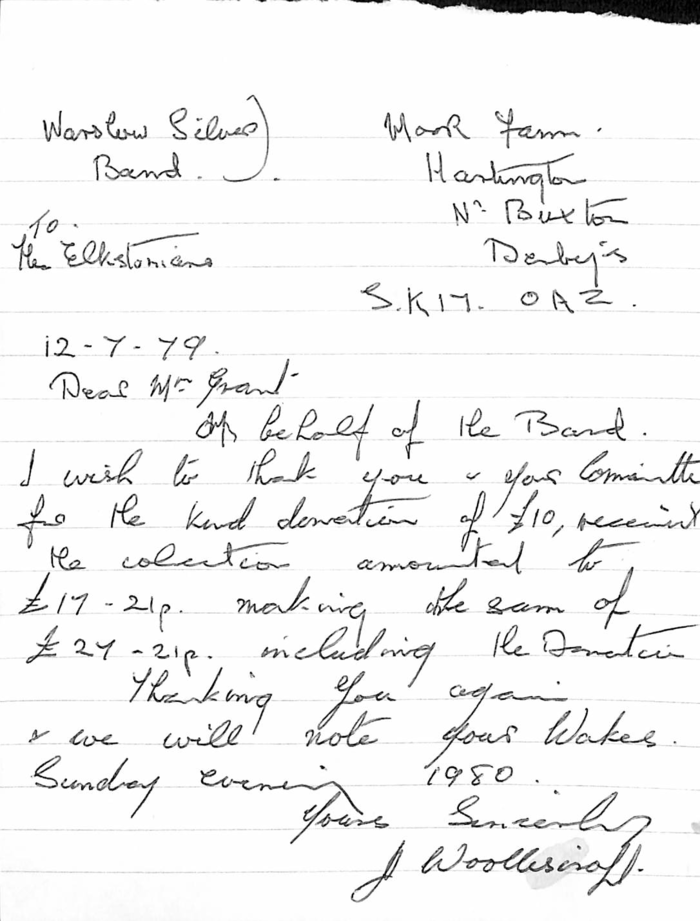 Warslow Silver
Band.
Moor Farm.
Hartington
Nr Buxton
Derby's
S.K17. OAZ.
To.
The Elkstonians
12-7-79.
Dear Mr Grant
On behalf of the Band.
I wish to thank you & your Committe
for the kind donation of £10, received
the colection amounted to
£17-21p. making the sum of
£27-21p. including the Donation
Thanking you again
& we will note your Wakes.
Sunday evening 1980.
Yours Sincerly
J Woolliscroft.